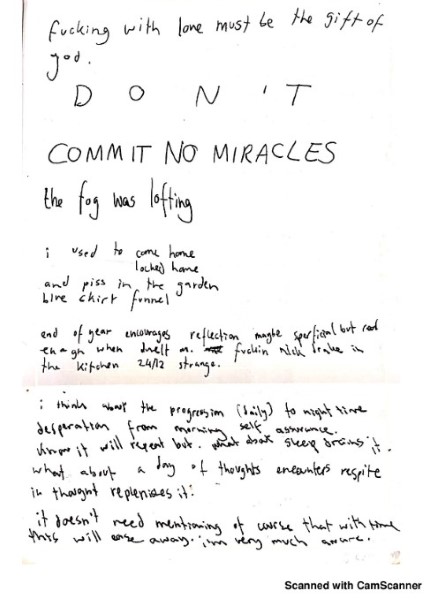 fucking with love must be the gift of
god.
D O N ' T
COMMIT NO MIRACLES
the fog was lofting
i used to come home
locked home
and piss in the garden
blue skirt funnel
end of year encourages reflection maybe superficial but real
enough when dwelt on. fuckin Nick Drake in
the kitchen 24/12 strange.
i think about the progression (daily) to night time
desperation from morning self assurance.
it will repeat but. what about sleep drains it.
what about a day of thoughts encounters respite
in thought replenises it.
it doesn't need mentioning of course that with time
this will ease away. i'm very much aware.
Scanned with CamScanner